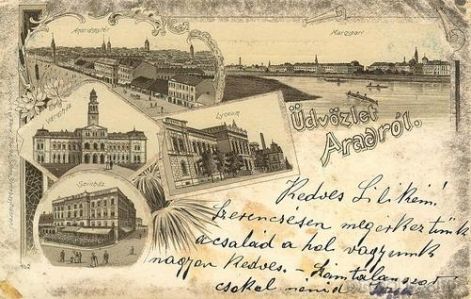 Andrássytér
Marospart
Városház
Lyceum
Színház
Üdvözlet
Aradról.
Kedves Lilikém!
Szerencsésen megérkeztünk
a család a hol vagyunk
nagyon kedves. - Számtalanszor
csókol nénéd